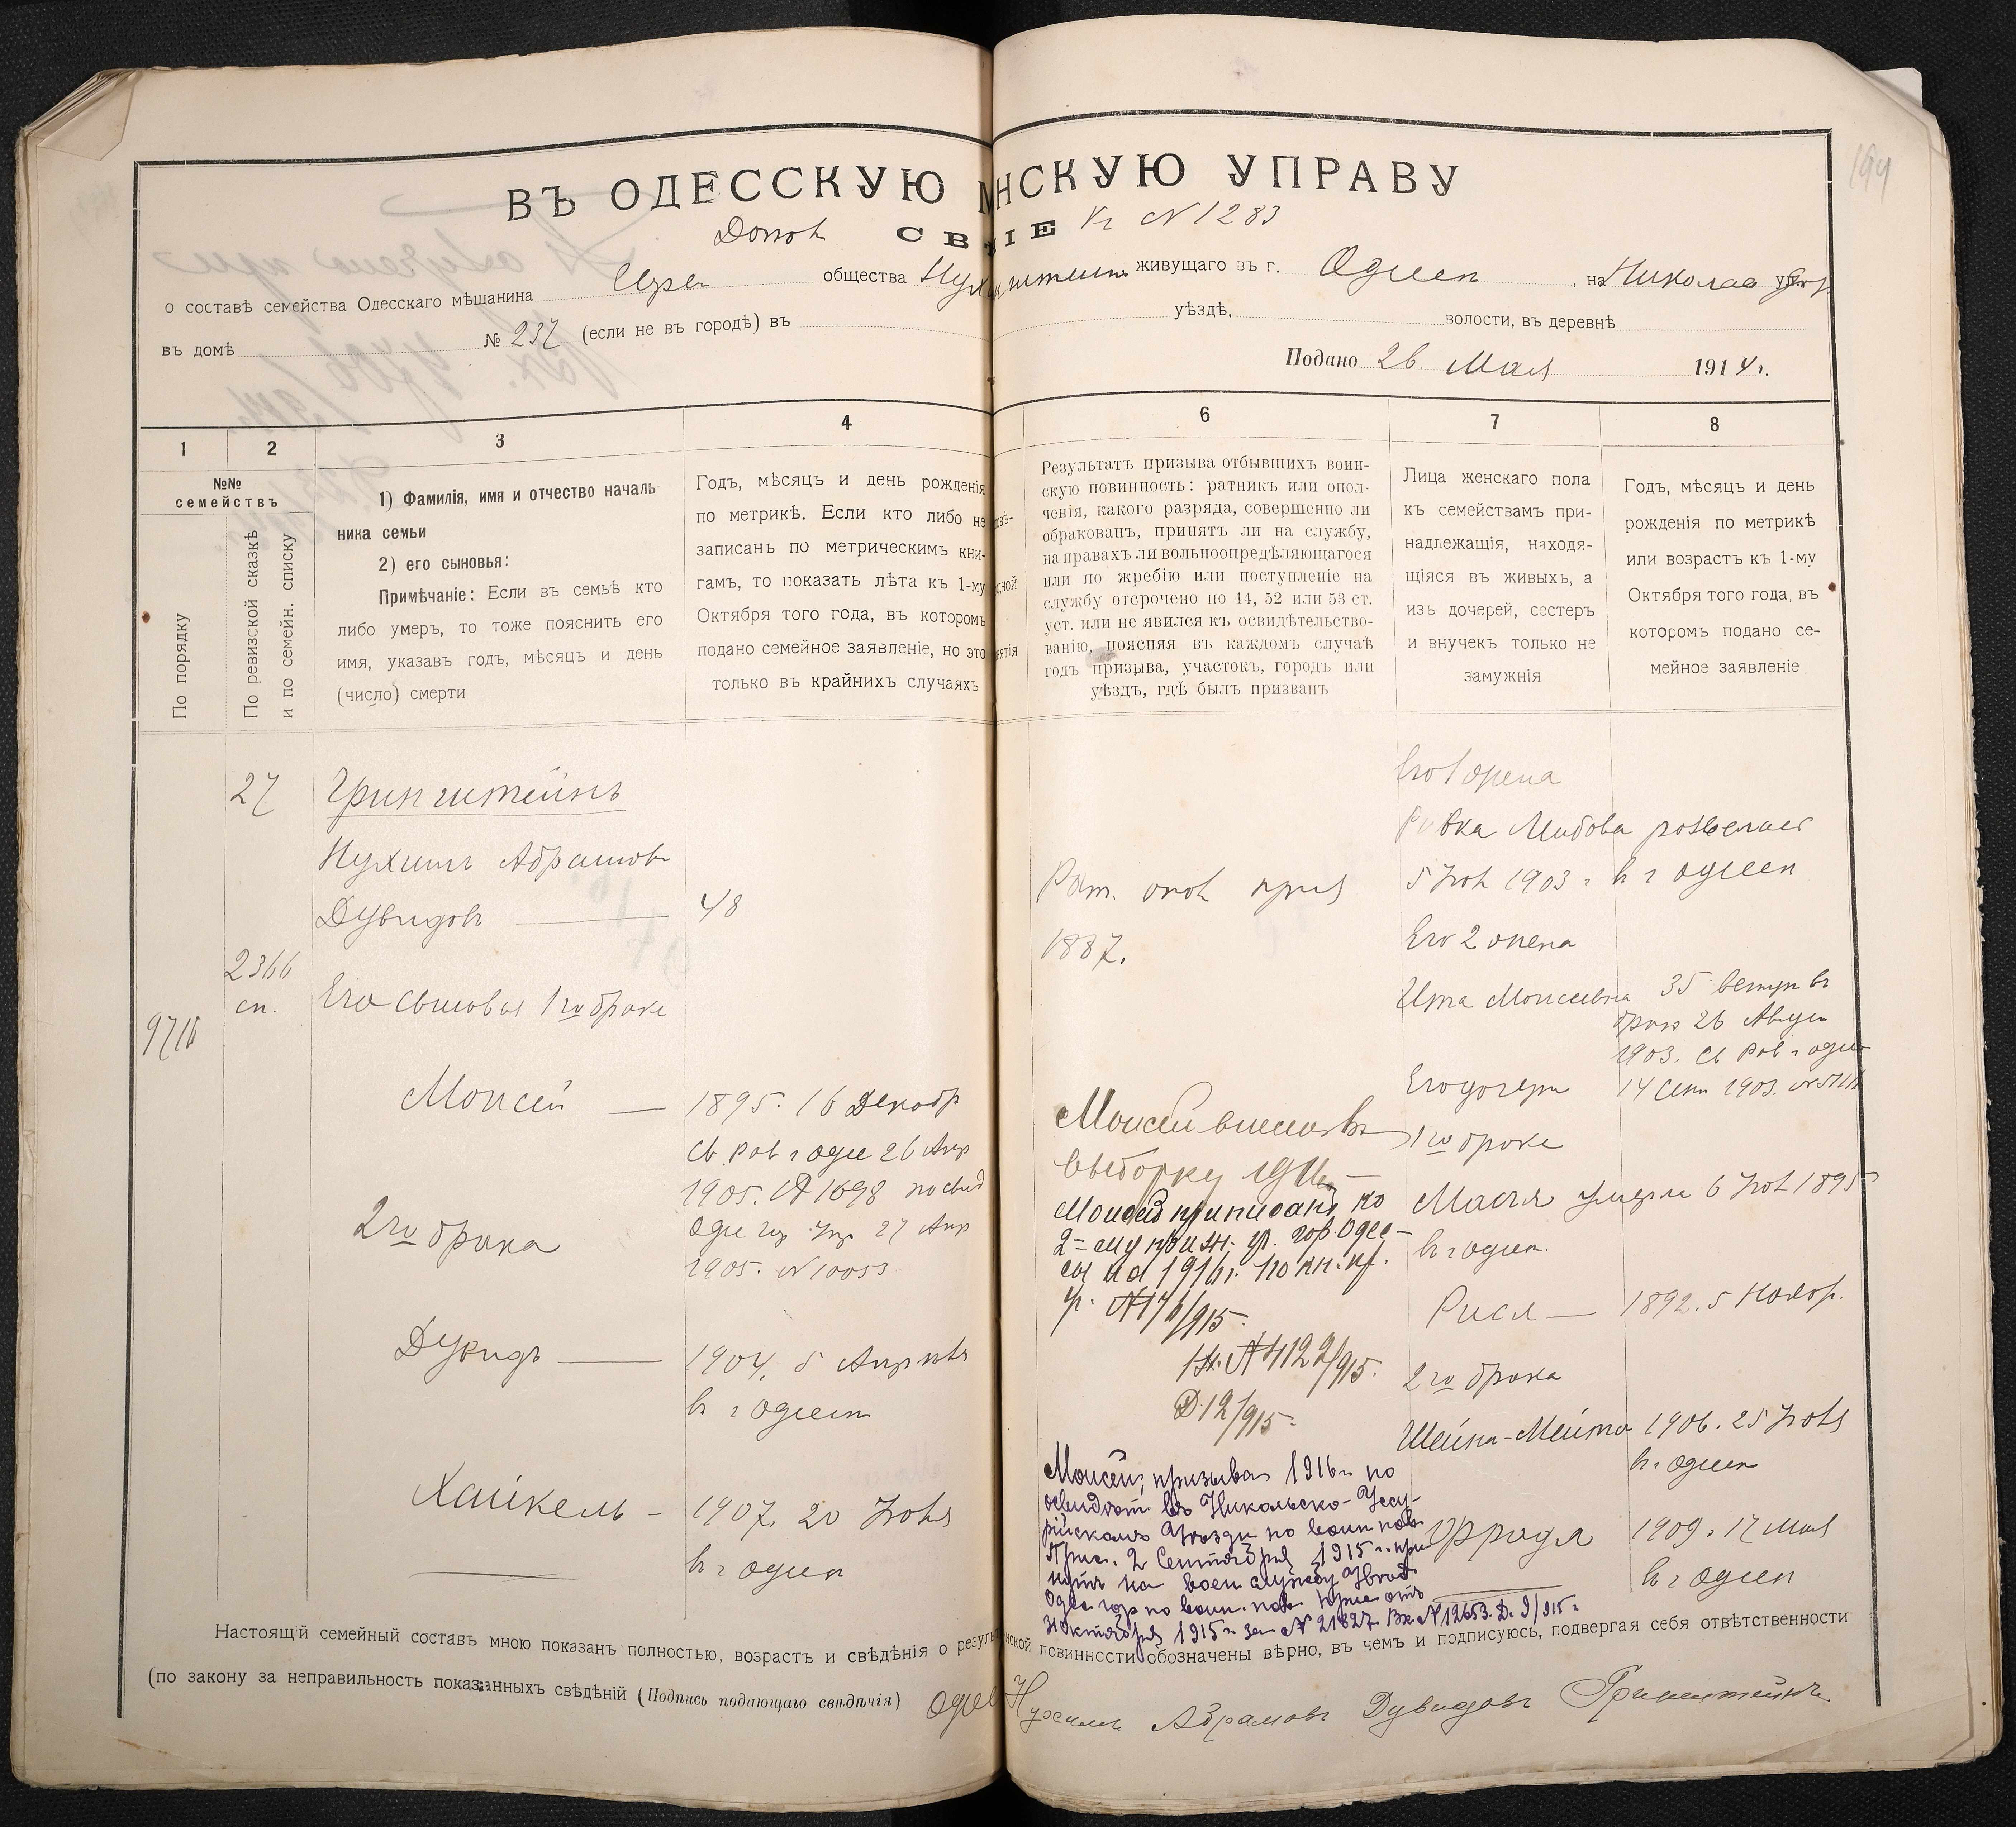 194
ВЪ ОДЕССКУЮ НСКУЮ УПРАВУ
СВ ІЕ № 1283
о составѣ семейства Одесскаго мѣщанина общества живущаго въ г. Одессѣ, на Николаев
въ домѣ № 237 (если не въ городѣ) въ уѣздѣ, волости, въ деревнѣ
Подано 26 Мая 1914 г.
1
2
3
4
6
7
8
№№
семействъ
По порядку
По ревизской сказкѣ
и по семейн. списку
1) Фамилія, имя и отчество началь-
ника семьи
2) его сыновья:
Примѣчаніе: Если въ семьѣ кто
либо умеръ, то тоже пояснить его
имя, указавъ годъ, мѣсяцъ и день
(число) смерти
Годъ, мѣсяцъ и день рожденія
по метрикѣ. Если кто либо не
записанъ по метрическимъ кни-
гамъ, то показать лѣта къ 1-му
Октября того года, въ которомъ
подано семейное заявленіе, но это
только въ крайнихъ случаяхъ
Результатъ призыва отбывшихъ воин-
скую повинность: ратникъ или опол-
ченія, какого разряда, совершенно ли
обракованъ, принятъ ли на службу,
на правахъ ли вольноопредѣляющагося
или по жребію или поступленіе на
службу отсрочено по 44, 52 или 53 ст.
уст. или не явился къ освидѣтельство-
ванію, поясняя въ каждомъ случаѣ
годъ призыва, участокъ, городъ или
уѣздъ, гдѣ былъ призванъ
Лица женскаго пола
къ семействамъ при-
надлежащія, находя-
щіяся въ живыхъ, а
изъ дочерей, сестеръ
и внучекъ только не
замужнія
Годъ, мѣсяцъ и день
рожденія по метрикѣ
или возрастъ къ 1-му
Октября того года, въ
которомъ подано се-
мейное заявленіе
27
2366
сп.
9716
Гринштейнъ
Нухимъ Абрамовъ
Дувидовъ — 48
Его сыновья 1го брака
Моисей — 1895. 16 Декабр
1905. № 1698
27 Апр
1905. № 10053
2го брака
Дувидъ — 1904. 5 Апрѣля
въ г Одессѣ
Хайкель — 1907. 20 Іюня
въ г Одессѣ
1887.
Моисей внесенъ въ
выборку
Моисей приписанъ ко
2-му призн. уч. гор. Одес-
сы на 1916 г. по кн. пр.
уч. № 176/915.
Вх. № 4122/915.
Д. 12/915.
Моисей, призыва 1916 г. по
освидѣт въ Никольско-Уссу-
рійскомъ Уѣздн по воин пов
Прис. 2 Сентября 1915 г. при-
нятъ на воен службу Увѣд
Одес гор по воин. пов. Прис отъ
Октября 1915 г. за № 21827 Вх № 12653. Д. 9/915 г.
Его 1 жена
Ривка развелась
1903 г въ г Одессѣ
Его 2 жена
Ита Моисеевна 35 вступ въ
бракъ 26 Август
1903.
14 Сент 1903.
Его дочери
1го брака
Масля умерла 6 1895
въ г Одес.
Рися — 1892. 5 Ноябр.
2го брака
Шейна-Мейта 1906. 25 Іюня
въ г Одессѣ
Фрадя 1909 г 17 Мая
въ г Одессѣ
Настоящій семейный составъ мною показанъ полностью, возрастъ и свѣдѣнія о резуль нской повинности обозначены вѣрно, въ чемъ и подписуюсь, подвергая себя отвѣтственности
(по закону за неправильность показанныхъ свѣдѣній (Подпись подающаго свѣдѣнія) Нухимъ Абрамовъ Дувидовъ Гринштейнъ